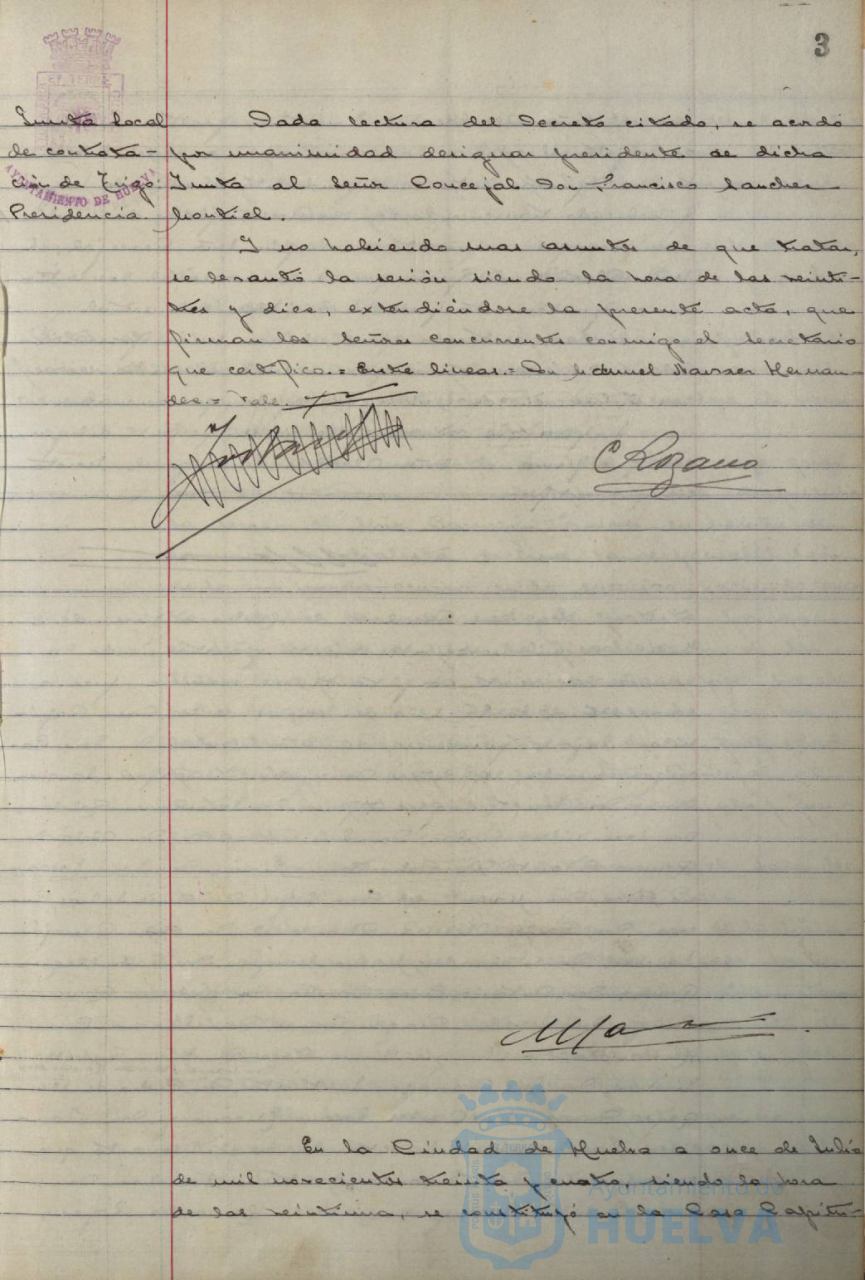 3
Junta local
de contrata-
ción de Trigo.
Presidencia.
Dada lectura del Decreto citado, se acordó
por unanimidad designar presidente de dicha
Junta al Señor Concejal Don Francisco Sanchez
Montiel.
Y no habiendo mas asuntos de que tratar,
se levantó la sesión siendo la hora de las veinti-
trés y diez, extendiéndose la presente acta, que
firman los Señores concurrentes conmigo el Secretario
que certifico.= Entre lineas.= Don Manuel Narvaez Hernan-
dez.= Vale.
AYUNTAMIENTO DE HUELVA
En la Ciudad de Huelva a once de Julio
de mil novecientos treinta y cuatro, siendo la hora
de las veintiuna, se constituyó en la Casa Capitu-
Ayuntamiento de
HUELVA